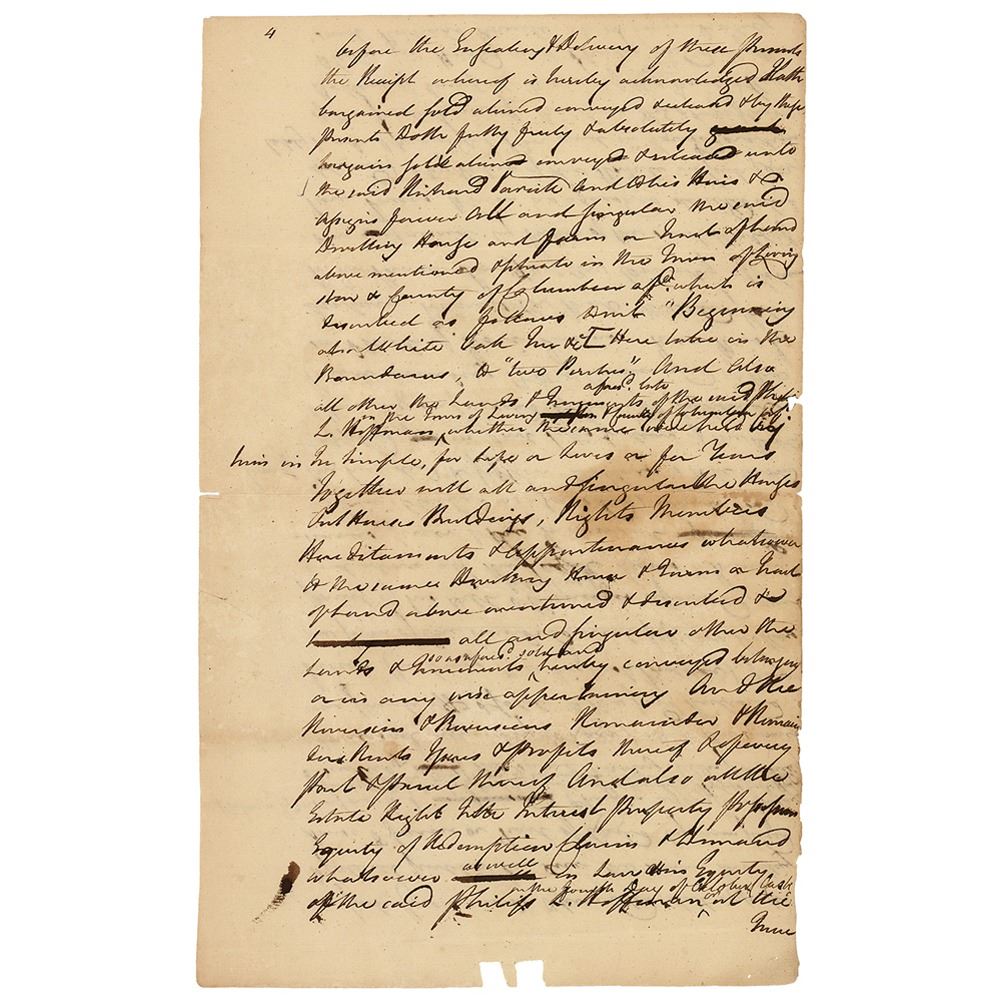 4
before the Ensealing & Delivery of these presents
the Receipt whereof is hereby acknowledged Hath
bargained sold aliened conveyed & released & by these
presents Doth fully freely & absolutely
bargain sold aliened conveyed & released unto
the said Richard and to his Heirs &
assigns forever All and singular the said
Dwelling House and farm or tract of Land
above mentioned situate in the Town of Living
ston & County of Columbia afsd. which is
described as follows Viz "Beginning
at a White Oak Tree &c [Here take in the
Boundaries, to "two Perches" And also
afores. late
all other the Lands & Tenements of the said Philip
in the Town of Living & County of Columbia
L. Hoffman, whether the same were held by
him in Fee Simple, for Life or Lives or for Years
Together with all and singular the Houses
Out Houses Buildings, Rights Members
Hereditaments & Appurtenances whatsoever
to the same Dwelling House & Farm or tract
of Land above mentioned & described &
all and singular other the
so as afores. sold and
Lands & Tenements hereby conveyed belonging
or in any wise appertaining And the
Reversion & Reversions Remainder & Remain
ders Rents Issues & profits thereof & of every
part & parcel thereof And also all the
Estate Right Title Interest property possession
Equity of Redemption Claim & Demand
whatsoever as well in Law as in Equity
on the fourth Day of October Last
of the said Philip L. Hoffman or at the
time